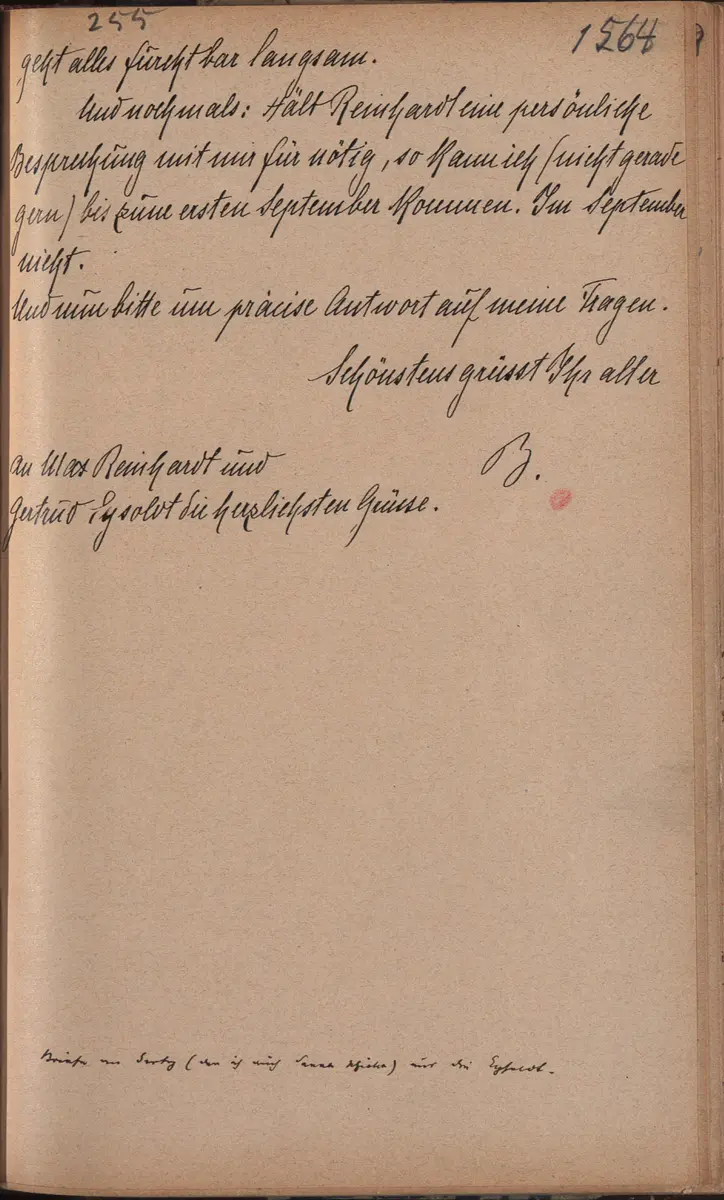 255
1564
geht alles furchtbar langsam.
Und nochmals: Hält Reinhardt eine persönliche
Besprechung mit mir für nötig, so kann ich (nicht gerade
gern) bis zum ersten September kommen. Im September
nicht.
Und nun bitte um präcise Antwort auf meine Fragen.
Schönstens grüsst Ihr alter
B.
An Max Reinhardt und
Gertrud Eysoldt die herzlichsten Grüsse.
ich mich und die Eysoldt.